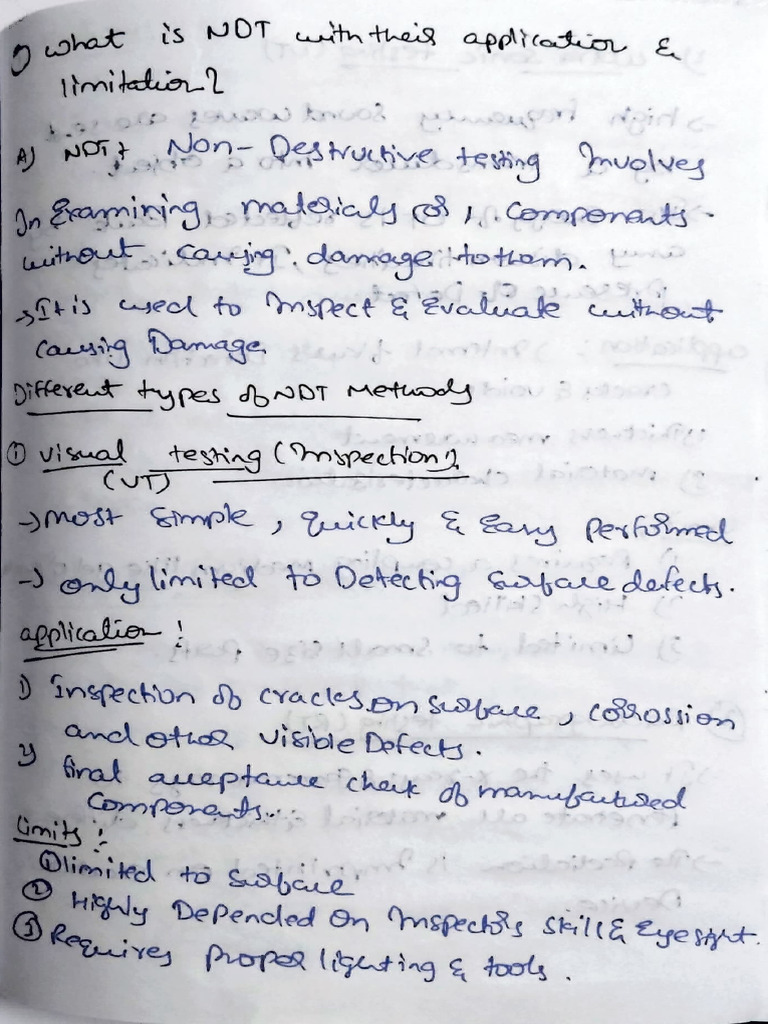 1) what is NDT with their application &
limitation?
A) NDT: Non-Destructive testing Involves
In Examining materials or components
without causing damage to them.
→ It is used to Inspect & Evaluate without
causing Damage.
Different types of NDT Methods
① visual testing (Inspection)
(VT)
→ most simple, quickly & Easy performed
→ only limited to Detecting surface defects.
application:
1) Inspection of cracks on surface, corrossion
and other visible Defects.
2) final acceptance check of manufactured
components.
Limits:
① limited to surface
② Highly Depended on Inspectors skill & Eyesight.
③ Requires proper lighting & tools.